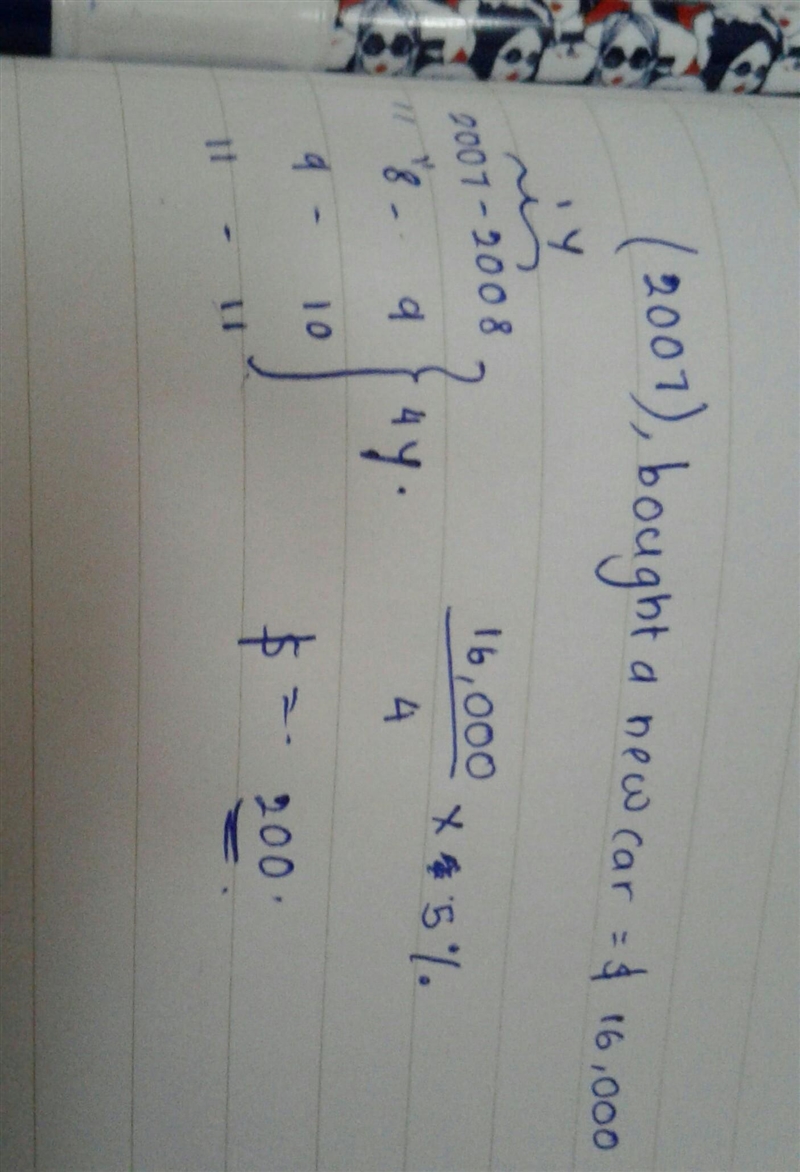 (2007), bought a new car = $ 16,000
1 y
2007 - 2008
" "8 - 9
9 - 10
11 - 11
4 y.
16,000
4
x 5%.
$ = 200.